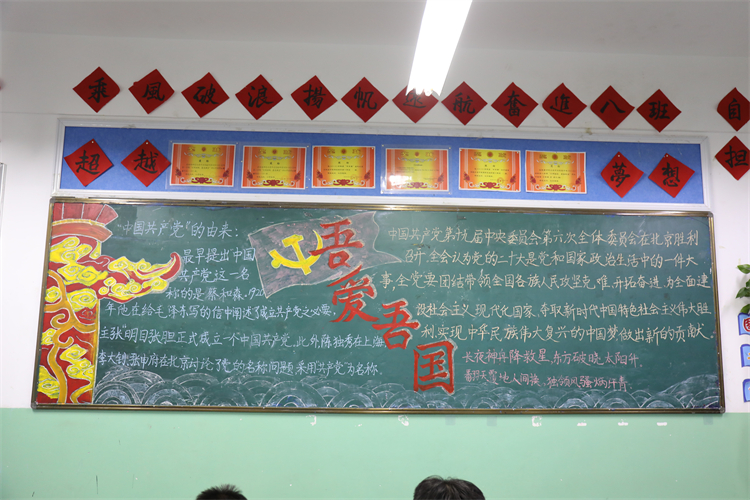 乘風破浪揚帆远航奋進八班
自
担
超越
梦想
“中国共产党”的由来：
最早提出中国
共产党这一名
称的是蔡和森。
年他在给毛泽东写的信中阐述了成立共产党之必要，
主张明目张胆正式成立一个中国共产党。此外陈独秀在上海，
李大钊张申府在北京讨论了党的名称问题采用共产党为名称。
吾爱吾国
中国共产党第十九届中央委员会第六次全体委员会在北京胜利
召开，全会认为党的二十大是党和国家政治生活中的一件大
事，全党要团结带领全国各族人民攻坚克难，开拓奋进，为全面建
设社会主义现代化国家、夺取新时代中国特色社会主义伟大胜
利实现中华民族伟大复兴的中国梦做出新的贡献。
长夜神舟降救星，东方破晓太阳升
独领风骚炳汗青